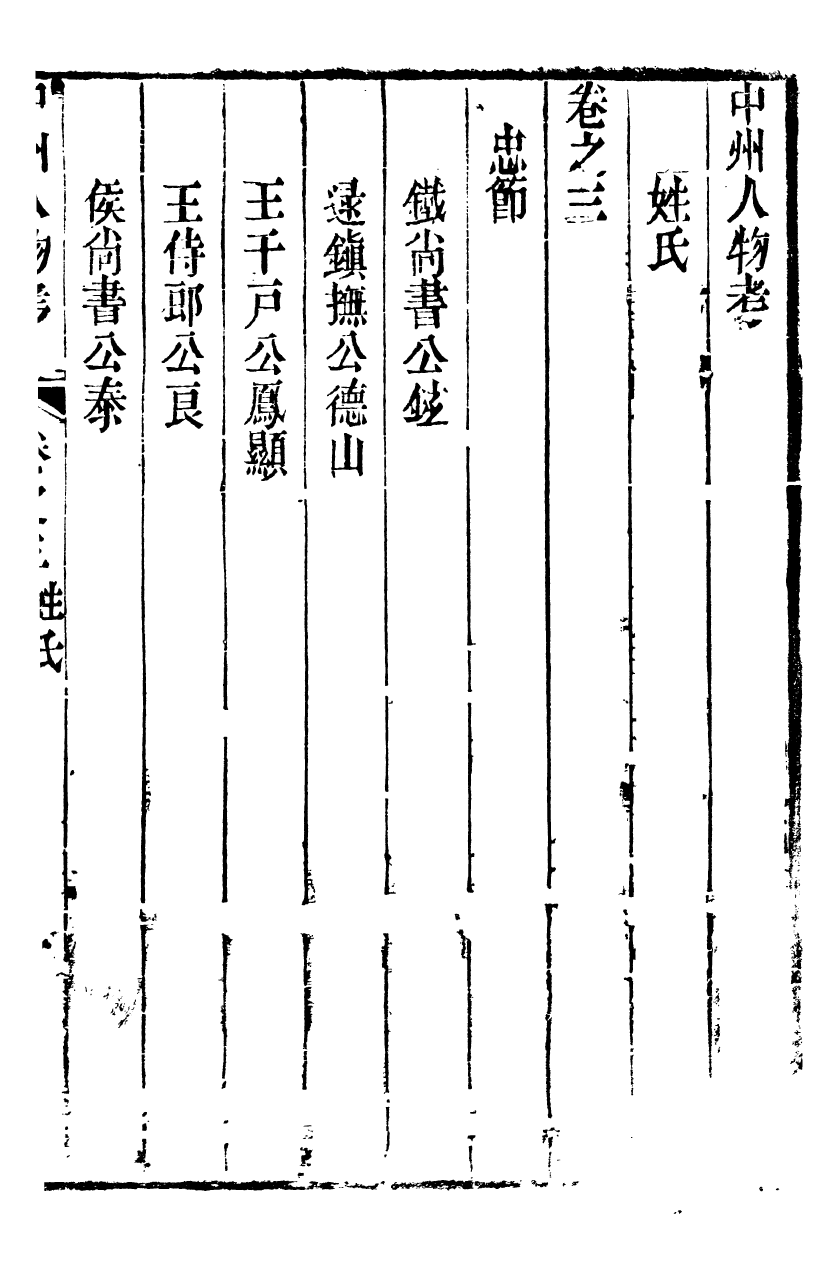 中州人物考
姓氏
卷之三
忠節
鐵尚書公鉉
逯鎮撫公德山
王千戸公鳳顯
王侍郎公良
侯尚書公泰
中州人物考 卷之三 姓氏